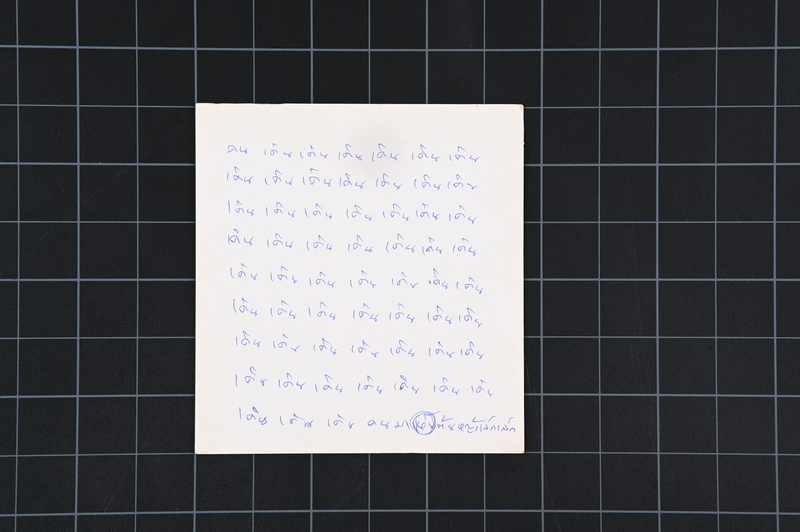 คน เดิน เดิน เดิน เดิน เดิน เดิน
เดิน เดิน เดิน เดิน เดิน เดิน เดิน
เดิน เดิน เดิน เดิน เดิน เดิน เดิน
เดิน เดิน เดิน เดิน เดิน เดิน เดิน
เดิน เดิน เดิน เดิน เดิน เดิน เดิน
เดิน เดิน เดิน เดิน เดิน เดิน เดิน
เดิน เดิน เดิน เดิน เดิน เดิน เดิน
เดิน เดิน เดิน เดิน เดิน เดิน เดิน
เดิน เดิน เดิน คนมา ต้นหญ้าเล็กเล็ก